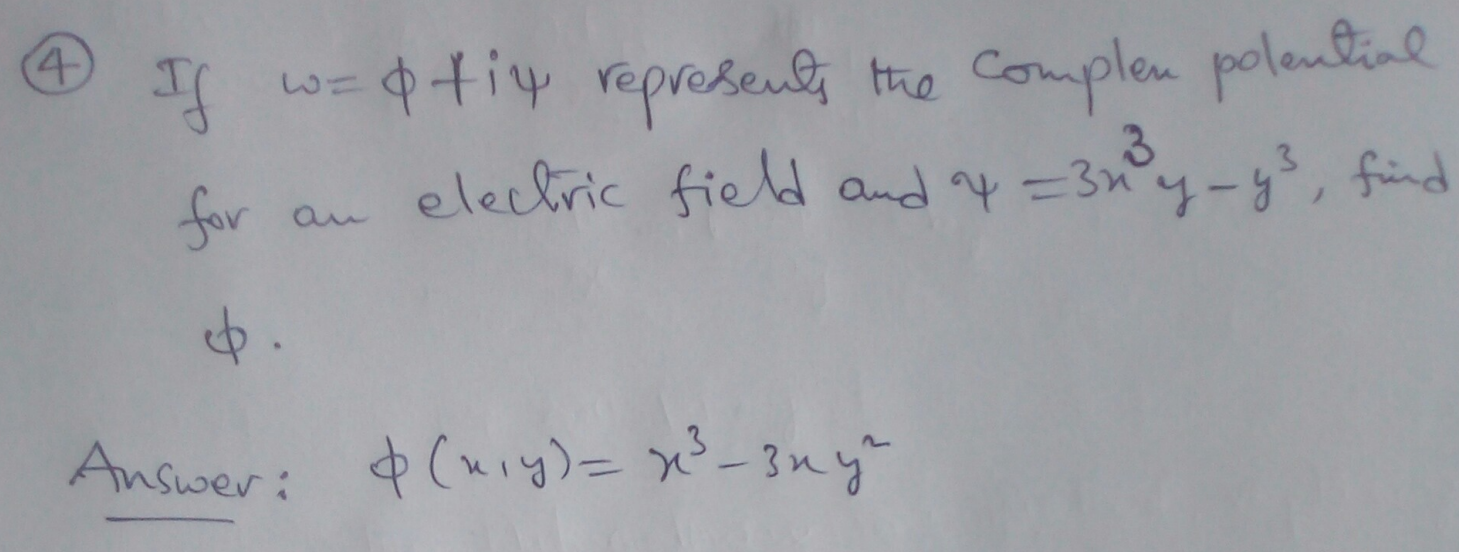 ④ If w = ϕ + iψ represents the Complex potential
for an electric field and ψ = 3x³y - y³, find
ϕ.
Answer: ϕ(x,y) = x³ - 3xy²